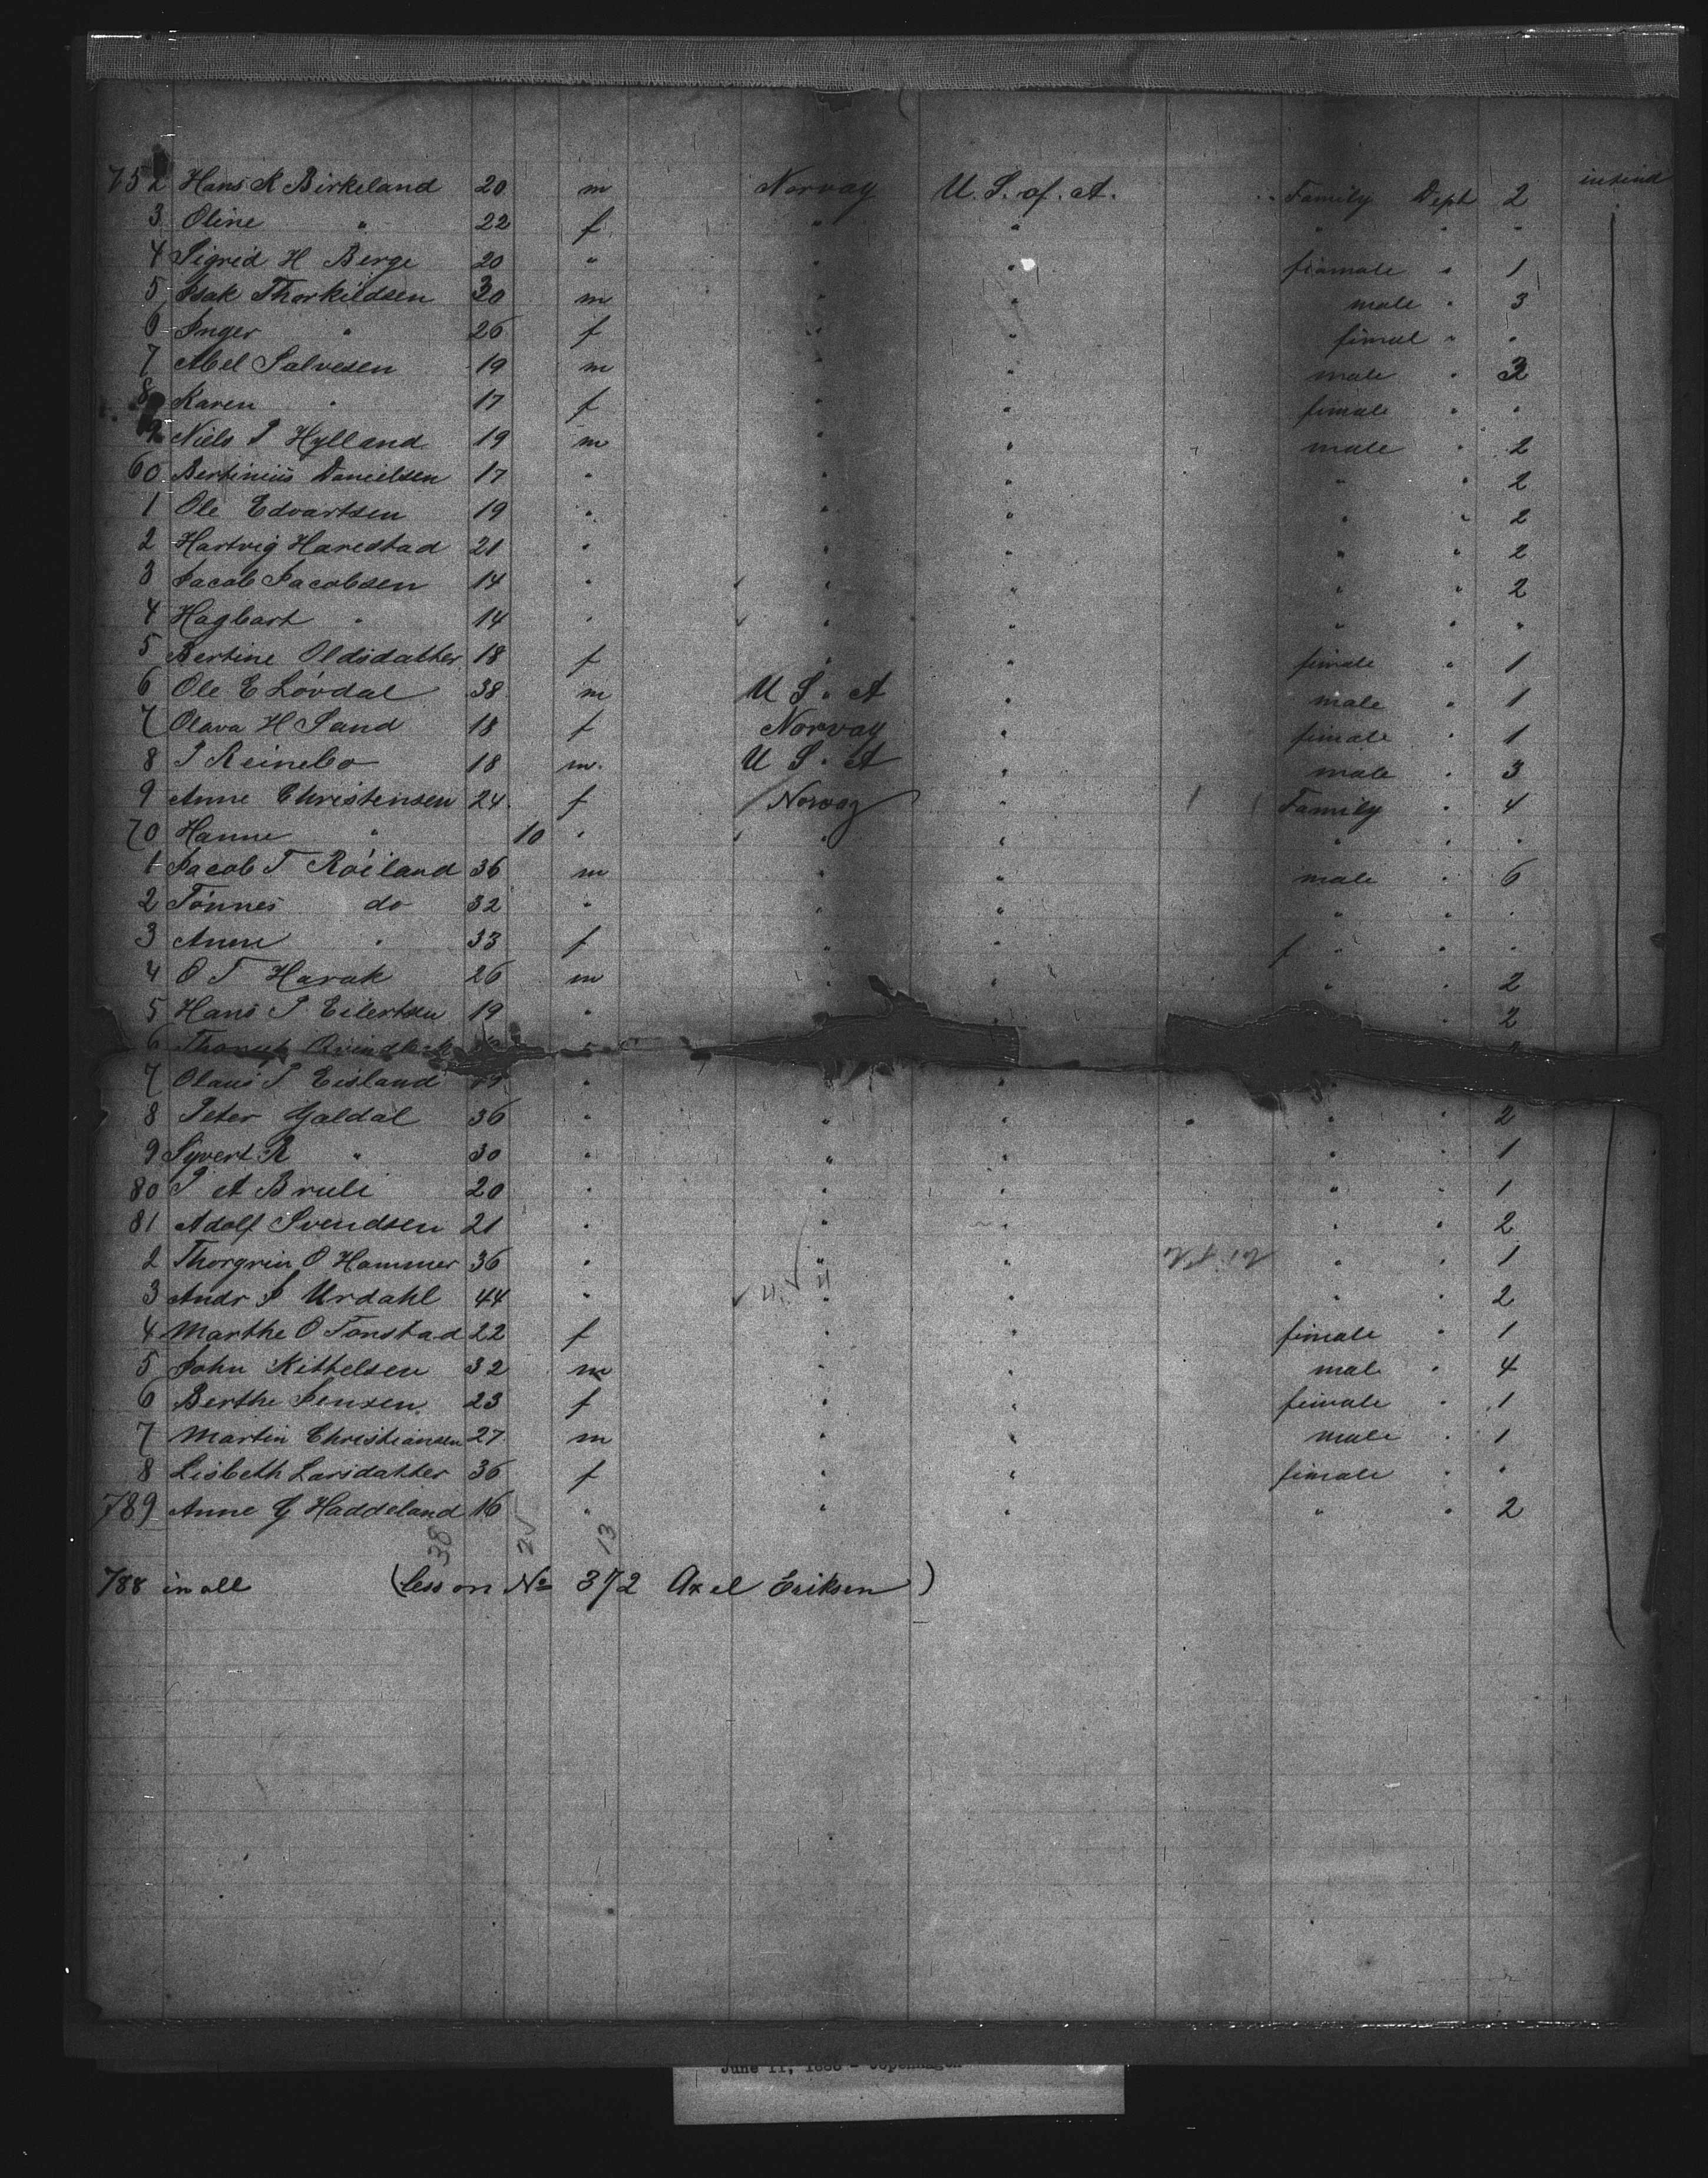 752 Hans K Birkeland 20 m Norway U. S. of. A. Family Dept 2 intend
3 Oline " 22 f " " " " "
4 Sigrid H Berge 20 " " " feamale " 1
5 Isak Thorkildsen 30 m " " male " 3
6 Inger " 26 f " " fimal " "
7 Abel Salvesen 19 m " " male " 3
8 Karen " 17 f " " fimale " "
9 Niels P Hylland 19 m " " male " 2
60 Bertinius Danielsen 17 " " " " " 2
1 Ole Edvartsen 19 " " " " " 2
2 Hartvig Harestad 21 " " " " " 2
3 Jacob Jacobsen 14 " " " " " 2
4 Hagbart " 14 " " " " " "
5 Bertine Oldsdatter 18 f " " fimale " 1
6 Ole E Lövdal 38 m U S " A " male " 1
7 Olava H Sand 18 f Norway " fimale " 1
8 T Reinebo 18 m. U S. A " male " 3
9 Anne Christensen 24 f Norway " Family " 4
70 Hanne " 10 " " " " " "
1 Jacob T Röiland 36 m " " male " 6
2 Tönnes do 32 " " " " " "
3 Anne " 33 f " " f " " "
4 O T Harak 26 m " " " " 2
5 Hans P Eilertsen 19 " " " 2
6
7 Olaus T Eisland 19 " " "
8 Peter Galdal 36 " " " " " 2
9 Syvert R " 30 " " " " " 1
80 P A Bruli 20 " " " " " 1
81 Adolf Svendsen 21 " " " " " 2
2 Thorgrin O Hammer 36 " " " " " 1
3 Andr P Urdahl 44 " " " " " 2
4 Marthe O Tonstad 22 f " " fimale " 1
5 John Kittelsen 32 m " " mal " 4
6 Berthe Jensen 23 f " " female " 1
7 Martin Christiansen 27 m " " male " 1
8 Lisbeth Larsdatter 36 f " " fimale " "
789 Anne G Haddeland 16 " " " " " 2
38 25 13
788 in all (less on No 372 Axel Eriksen)
June 11, 1888 - Copenhagen